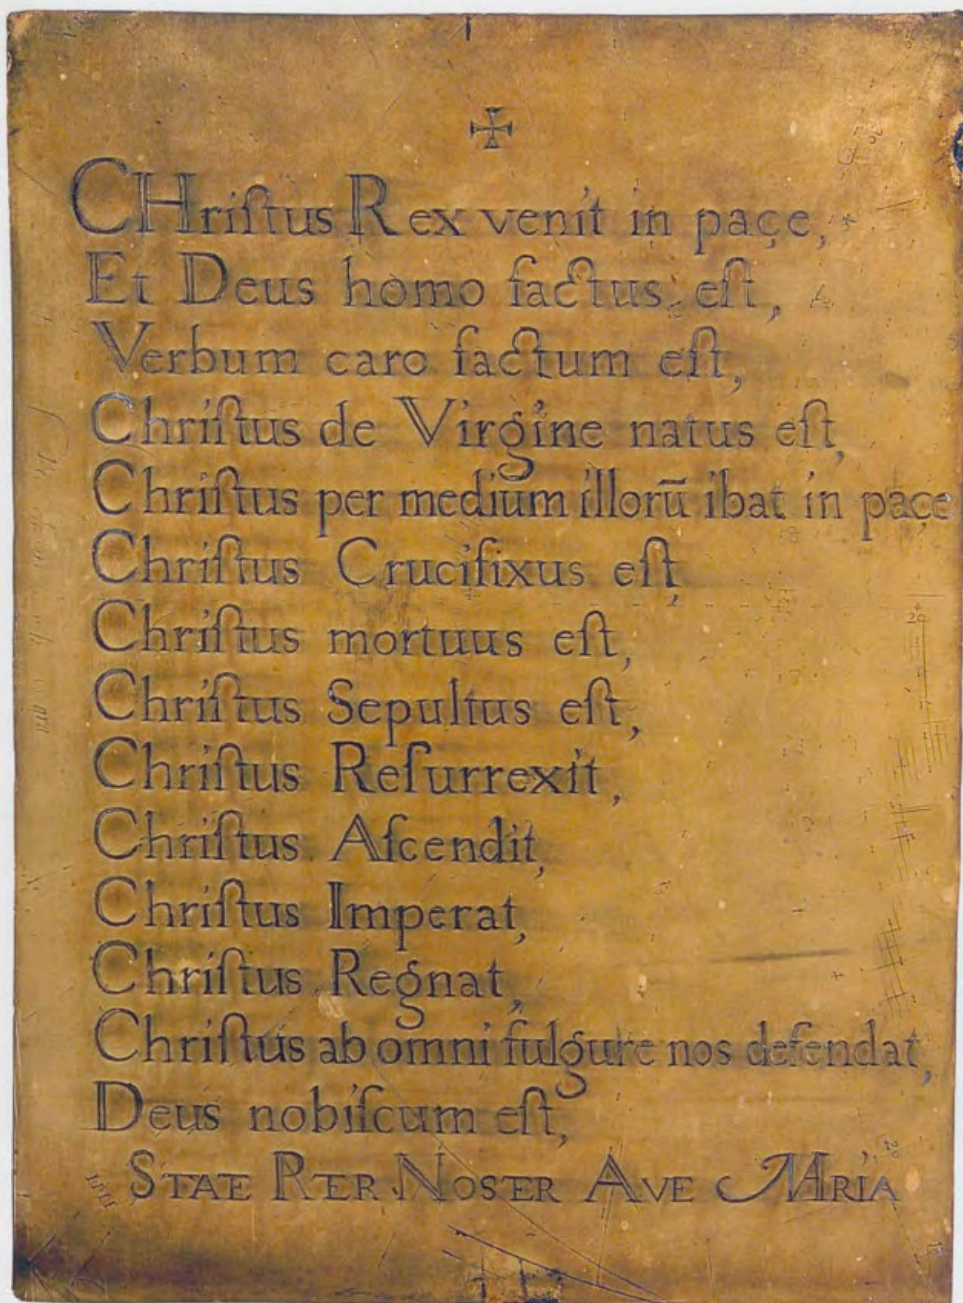 ✠
CHriſtus Rex venit in pace,
Et Deus homo factus eſt,
Verbum caro factum eſt,
Chriſtus de Virgine natus eſt,
Chriſtus per medium illorū ibat in pace
Chriſtus Crucifixus eſt,
Chriſtus mortuus eſt,
Chriſtus Sepultus eſt,
Chriſtus Reſurrexit,
Chriſtus Aſcendit,
Chriſtus Imperat,
Chriſtus Regnat,
Chriſtus ab omni fulgure nos defendat,
Deus nobiſcum eſt,
STATE PATER NOSTER AVE MARIA